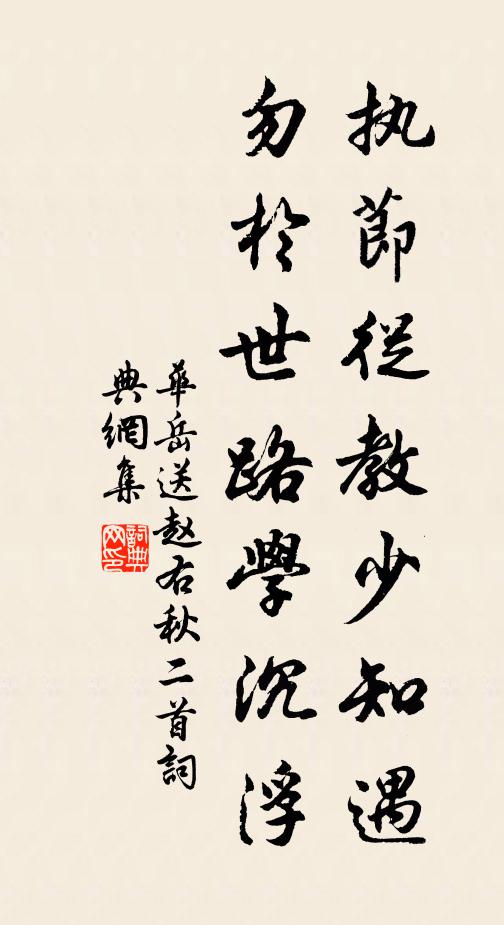 执節從教少知遇
勿於世路學沉浮
華岳送赵右秋二首詞
典網集
詞典
网印